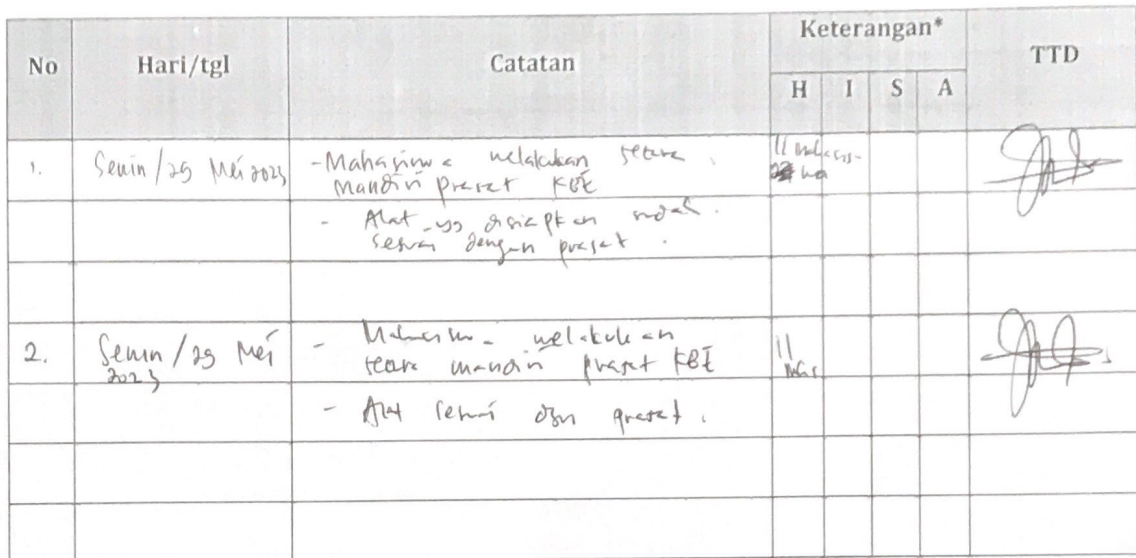 No Hari/tgl Catatan Keterangan* TTD
H I S A
1. Senin / 29 Mei 2023 - Mahasiswa melakukan secara
mandiri prasat KBE
11 mahasis-
wa
- Alat yg disiapkan sudah
sesuai dengan prasat.
2. Senin / 29 Mei
2023
- Mahasiswa melakukan
secara mandiri prasat KBE
11
mhs
- Alat sesuai dgn prasat.